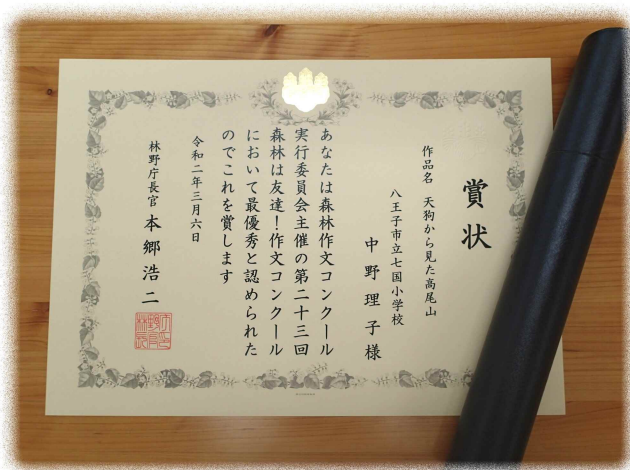 賞状
作品名 天狗から見た高尾山
八王子市立七国小学校
中野理子様
あなたは森林作文コンクール
実行委員会主催の第二十三回
森林は友達！作文コンクール
において最優秀と認められた
のでこれを賞します
令和二年三月六日
林野庁長官 本郷浩二